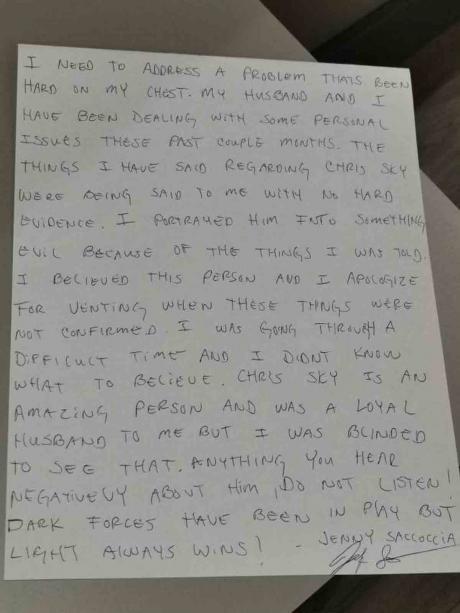 I NEED TO ADDRESS A PROBLEM THATS BEEN
HARD ON MY CHEST. MY HUSBAND AND I
HAVE BEEN DEALING WITH SOME PERSONAL
ISSUES THESE PAST COUPLE MONTHS. THE
THINGS I HAVE SAID REGARDING CHRIS SKY
WERE BEING SAID TO ME WITH NO HARD
EVIDENCE. I PORTRAYED HIM INTO SOMETHING
EVIL BECAUSE OF THE THINGS I WAS TOLD.
I BELIEVED THIS PERSON AND I APOLOGIZE
FOR VENTING WHEN THESE THINGS WERE
NOT CONFIRMED. I WAS GOING THROUGH A
DIFFICULT TIME AND I DIDNT KNOW
WHAT TO BELIEVE. CHRIS SKY IS AN
AMAZING PERSON AND WAS A LOYAL
HUSBAND TO ME BUT I WAS BLINDED
TO SEE THAT. ANYTHING YOU HEAR
NEGATIVELY ABOUT HIM, DO NOT LISTEN!
DARK FORCES HAVE BEEN IN PLAY BUT
LIGHT ALWAYS WINS! - JENNY SACCOCCIA